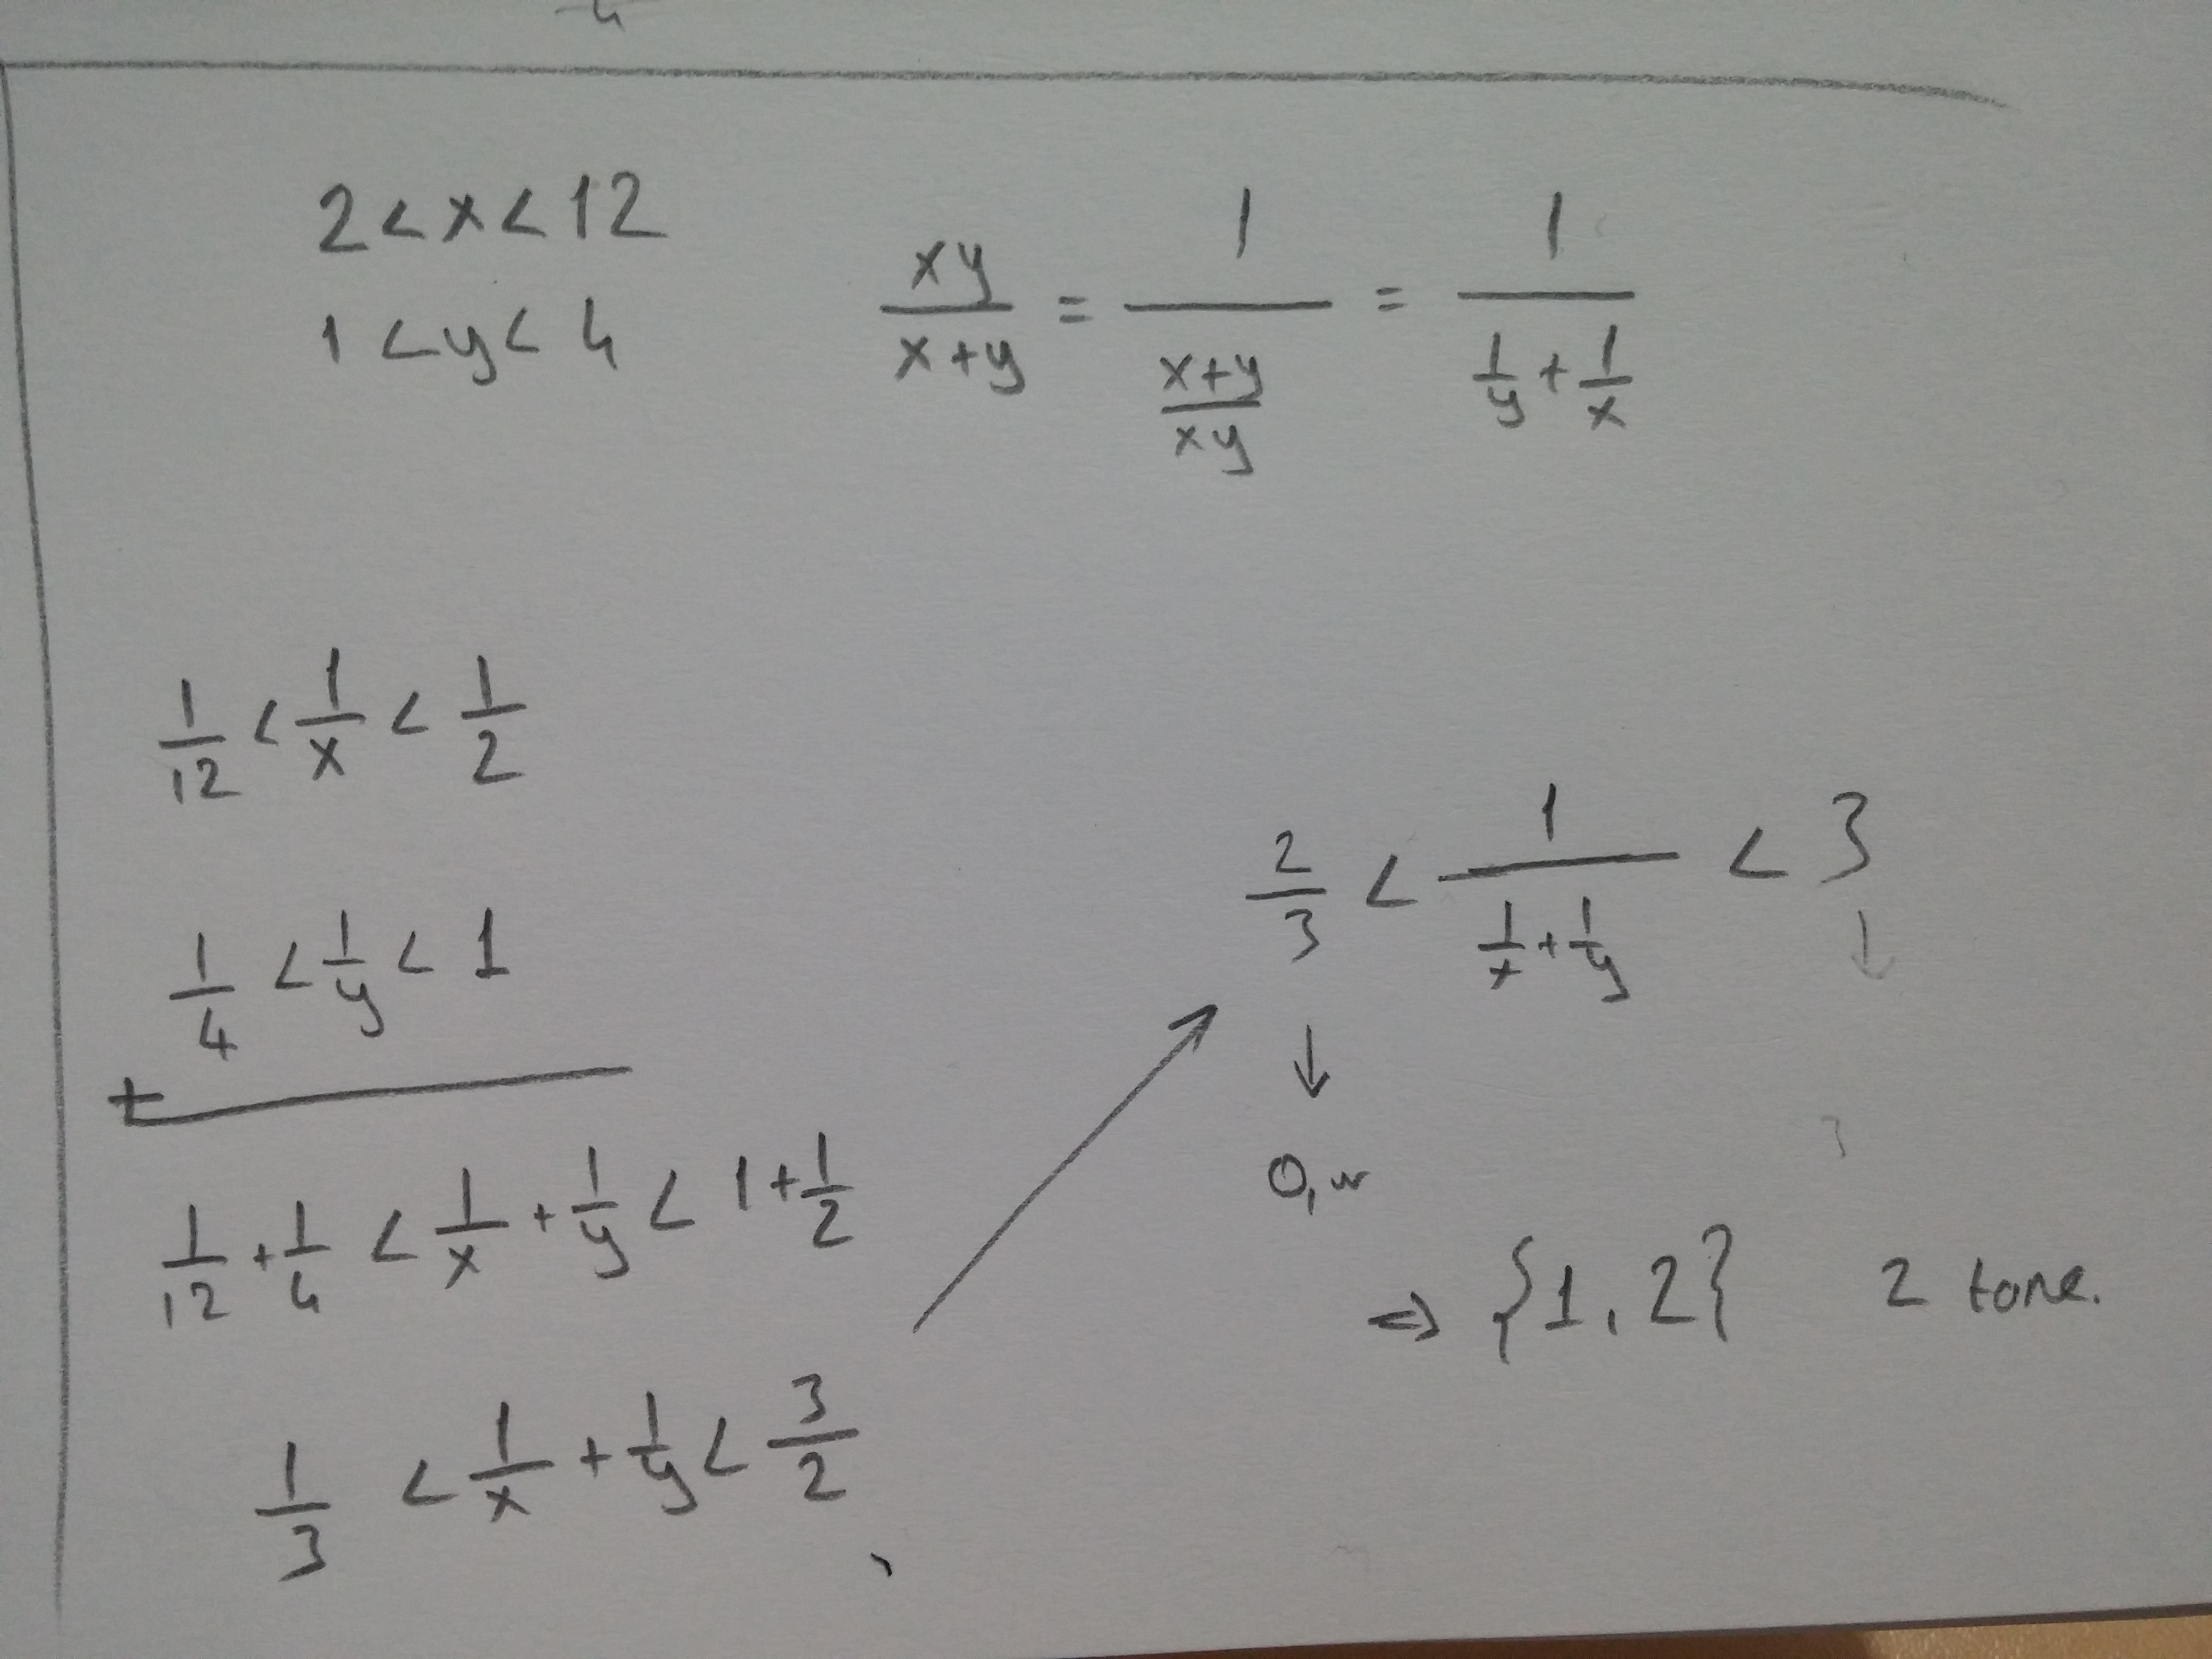 2 < x < 12
1 < y < 4
xy/(x+y) = 1/((x+y)/(xy)) = 1/(1/y + 1/x)
1/12 < 1/x < 1/2
1/4 < 1/y < 1
+
1/12 + 1/4 < 1/x + 1/y < 1 + 1/2
1/3 < 1/x + 1/y < 3/2
2/3 < 1/(1/x + 1/y) < 3
↓ ↓
0,
⇒ {1, 2} 2 tane.